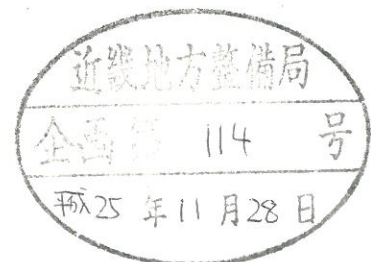 近畿地方整備局
企画第 114 号
平成25 年 11 月 28 日